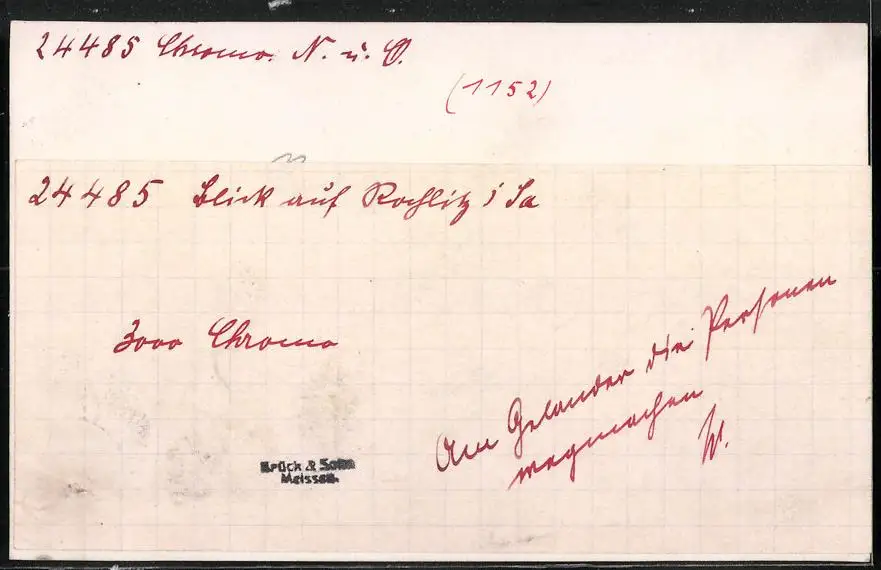 24485 Chromo. N. u. O.
(1152)
24485 Blick auf Rochlitz i Sa
3000 Chromo
Am Geländer die Personen
wegmachen
Brück & Sohn
Meissen.